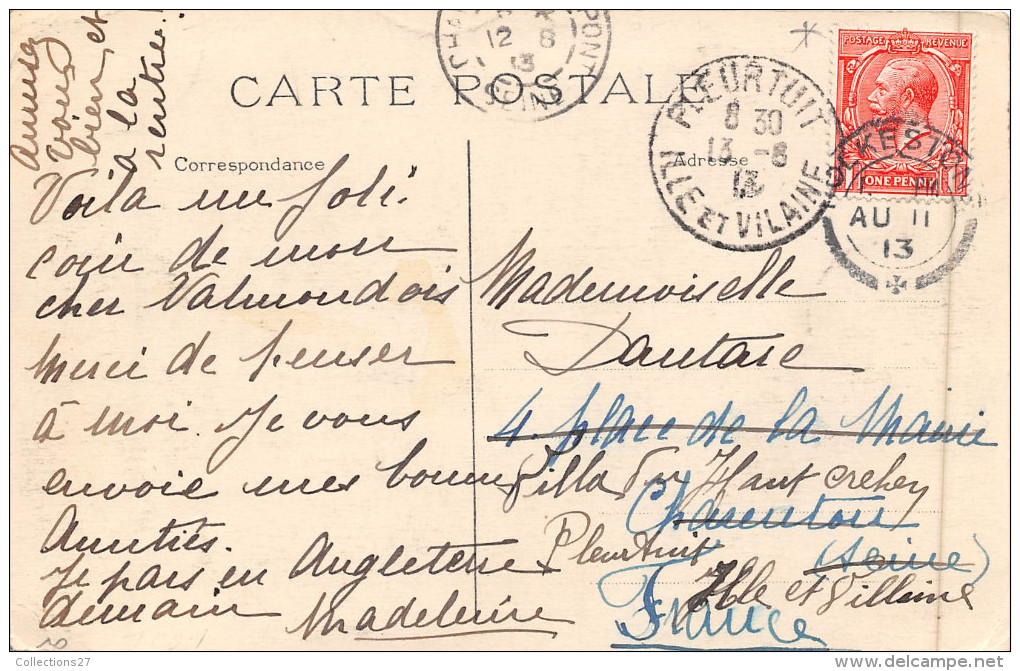 Amusez
vous
bien et
à la
rentrée.
CARTE POSTALE
Correspondance
Adresse
Voila un joli
coin de mon
cher Valmondois
Merci de penser
à moi. Je vous
envoie mes bonnes
Amitiés.
Je pars en Angleterre
demain Madeleine
Mademoiselle
Dautaie
4. place de la Mairie
Villa du Haut crehen
Charenton
Pleurtuit
(Seine)
Ille et Villaine
France
12 8
13
PONT
PLEURTUIT
8 30
13 -8
13
ILLE ET VILAINE
POSTAGE REVENUE
ONE PENNY
AU 11
13
Collections27
delcampe.net